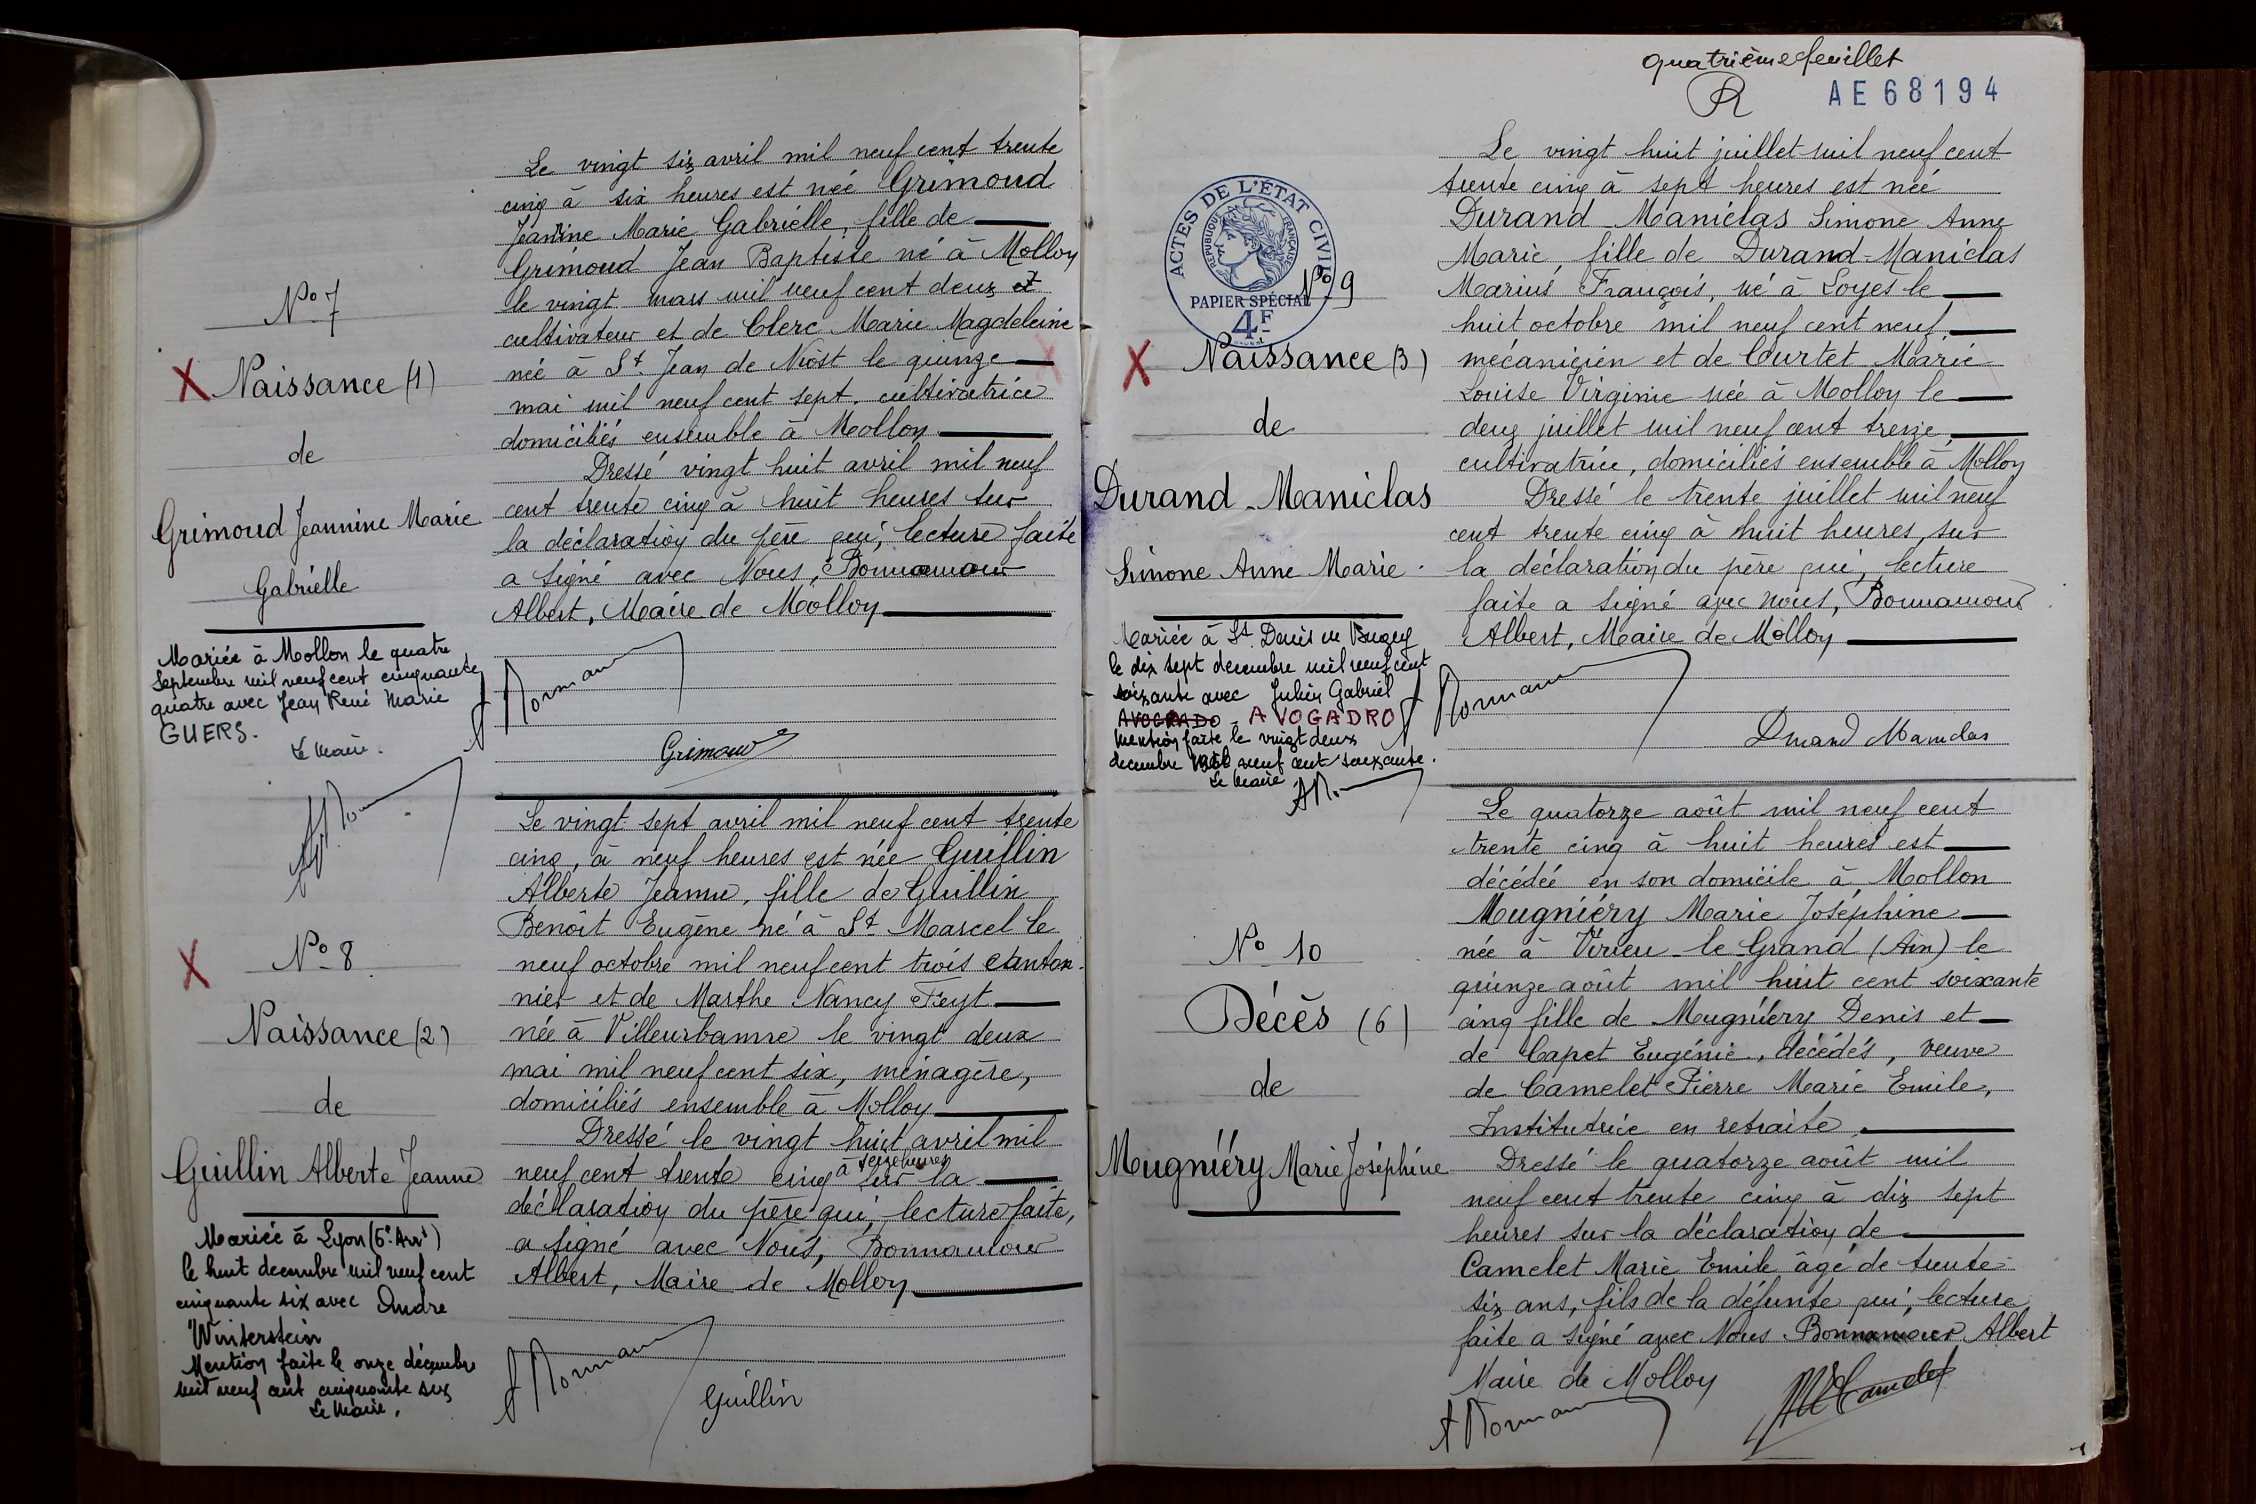 Nº 7
Naissance (1)
de
Grimoud Jeannine Marie
Gabrielle
Mariée à Mollon le quatre
Septembre mil neuf cent cinquante
quatre avec Jean René Marie
GUERS.
Le Maire.
Le vingt six avril mil neuf cent trente
cinq à six heures est née Grimoud
Jeannine Marie Gabrielle, fille de
Grimoud Jean Baptiste né à Mollon
le vingt mars mil neuf cent deux et
cultivateur et de Clerc Marie Magdeleine
née à St Jean de Niost le quinze
mai mil neuf cent sept, cultivatrice
domiciliés ensemble à Mollon
Dressé vingt huit avril mil neuf
cent trente cinq à huit heures sur
la déclaration du père qui, lecture faite
a signé avec Nous, Bonnamour
Albert, Maire de Mollon
Grimoud
Nº 8
Naissance (2)
de
Guillin Alberte Jeanne
Mariée à Lyon (6e Arrt)
le huit decembre mil neuf cent
cinquante six avec André
Winterstein
Mention faite le onze décembre
mil neuf cent cinquante six
Le Maire,
Le vingt sept avril mil neuf cent trente
cinq, à neuf heures est née Guillin
Alberte Jeanne, fille de Guillin
Benoît Eugène né à St Marcel le
neuf octobre mil neuf cent trois canton-
nier et de Marthe Nancy Feyt
née à Villeurbanne le vingt deux
mai mil neuf cent six, ménagère,
domiciliés ensemble à Mollon
Dressé le vingt huit avril mil
neuf cent trente cinq à seize heures sur la
déclaration du père qui, lecture faite,
a signé avec Nous, Bonnamour
Albert, Maire de Mollon
Guillin
quatrième feuillet
R
AE 68194
ACTES DE L'ÉTAT CIVIL
RÉPUBLIQUE FRANÇAISE
PAPIER SPÉCIAL
4F
Nº 9
Naissance (3)
de
Durand-Maniclas
Simone Anne Marie
Mariée à St. Denis en Bugey
le dix sept decembre mil neuf cent
soixante avec Julien Gabriel
AVOGRADO - AVOGADRO
Mention faite le vingt deux
decembre mil neuf cent soixante.
Le Maire
Le vingt huit juillet mil neuf cent
trente cinq à sept heures est née
Durand Maniclas Simone Anne
Marie, fille de Durand-Maniclas
Marius François, né à Loyes le
huit octobre mil neuf cent neuf
mécanicien et de Courtet Marie
Louise Virginie née à Mollon le
deux juillet mil neuf cent treize,
cultivatrice, domiciliés ensemble à Mollon
Dressé le trente juillet mil neuf
cent trente cinq à huit heures, sur
la déclaration du père qui, lecture
faite a signé avec nous, Bonnamour
Albert, Maire de Mollon
Durand Maniclas
Nº 10
Décès (6)
de
Mugniéry Marie Joséphine
Le quatorze août mil neuf cent
trente cinq à huit heures est
décédée en son domicile à Mollon
Mugniéry Marie Joséphine
née à Virieu-le-Grand (Ain) le
quinze août mil huit cent soixante
cinq fille de Mugniéry Denis et
de Capet Eugénie, décédés, veuve
de Camelet Pierre Marie Emile,
Institutrice en retraite,
Dressé le quatorze août mil
neuf cent trente cinq à dix sept
heures sur la déclaration de
Camelet Marie Emile âgé de trente
six ans, fils de la défunte qui, lecture
faite a signé avec Nous Bonnamour Albert
Maire de Mollon